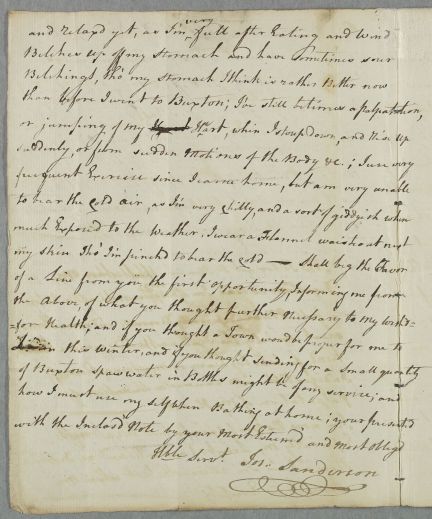 and relax'd yet, as I'm very full after Eating and Wind
Belches up off my Stomach and have sometimes sour
Belchings, tho' my Stomach I think is rather Better now
than before I went to Buxton; I've still betimes a palpatation,
or jumping of my Hart, when I stoup down, and rise up
suddenly, or from sudden Motions of the Body &c.; I use very
frequent Exercise since I came home, but am very unable
to bear the cold air, as I'm very chilly, and a sort of giddyish when
much Exposed to the Weather. I wear a Flannel waistcoat next
my skin tho' I'm pinch'd to bear the cold — Shall beg the Favor
of a Line from you the first opportunity, Informing me from
the Above, of what you thought further Necessary to my
for Health; and if you thought a Town would be proper for me to
in this Winter, and if you thought sending for a Small quantity
of Buxton spaw water in Bottles might be of any service; and
how I must use my self when Bathing at home; your presented
with the Inclos'd Note by your Most Esteemed and most Oblig'd
Hble Servt. Jos: Sanderson